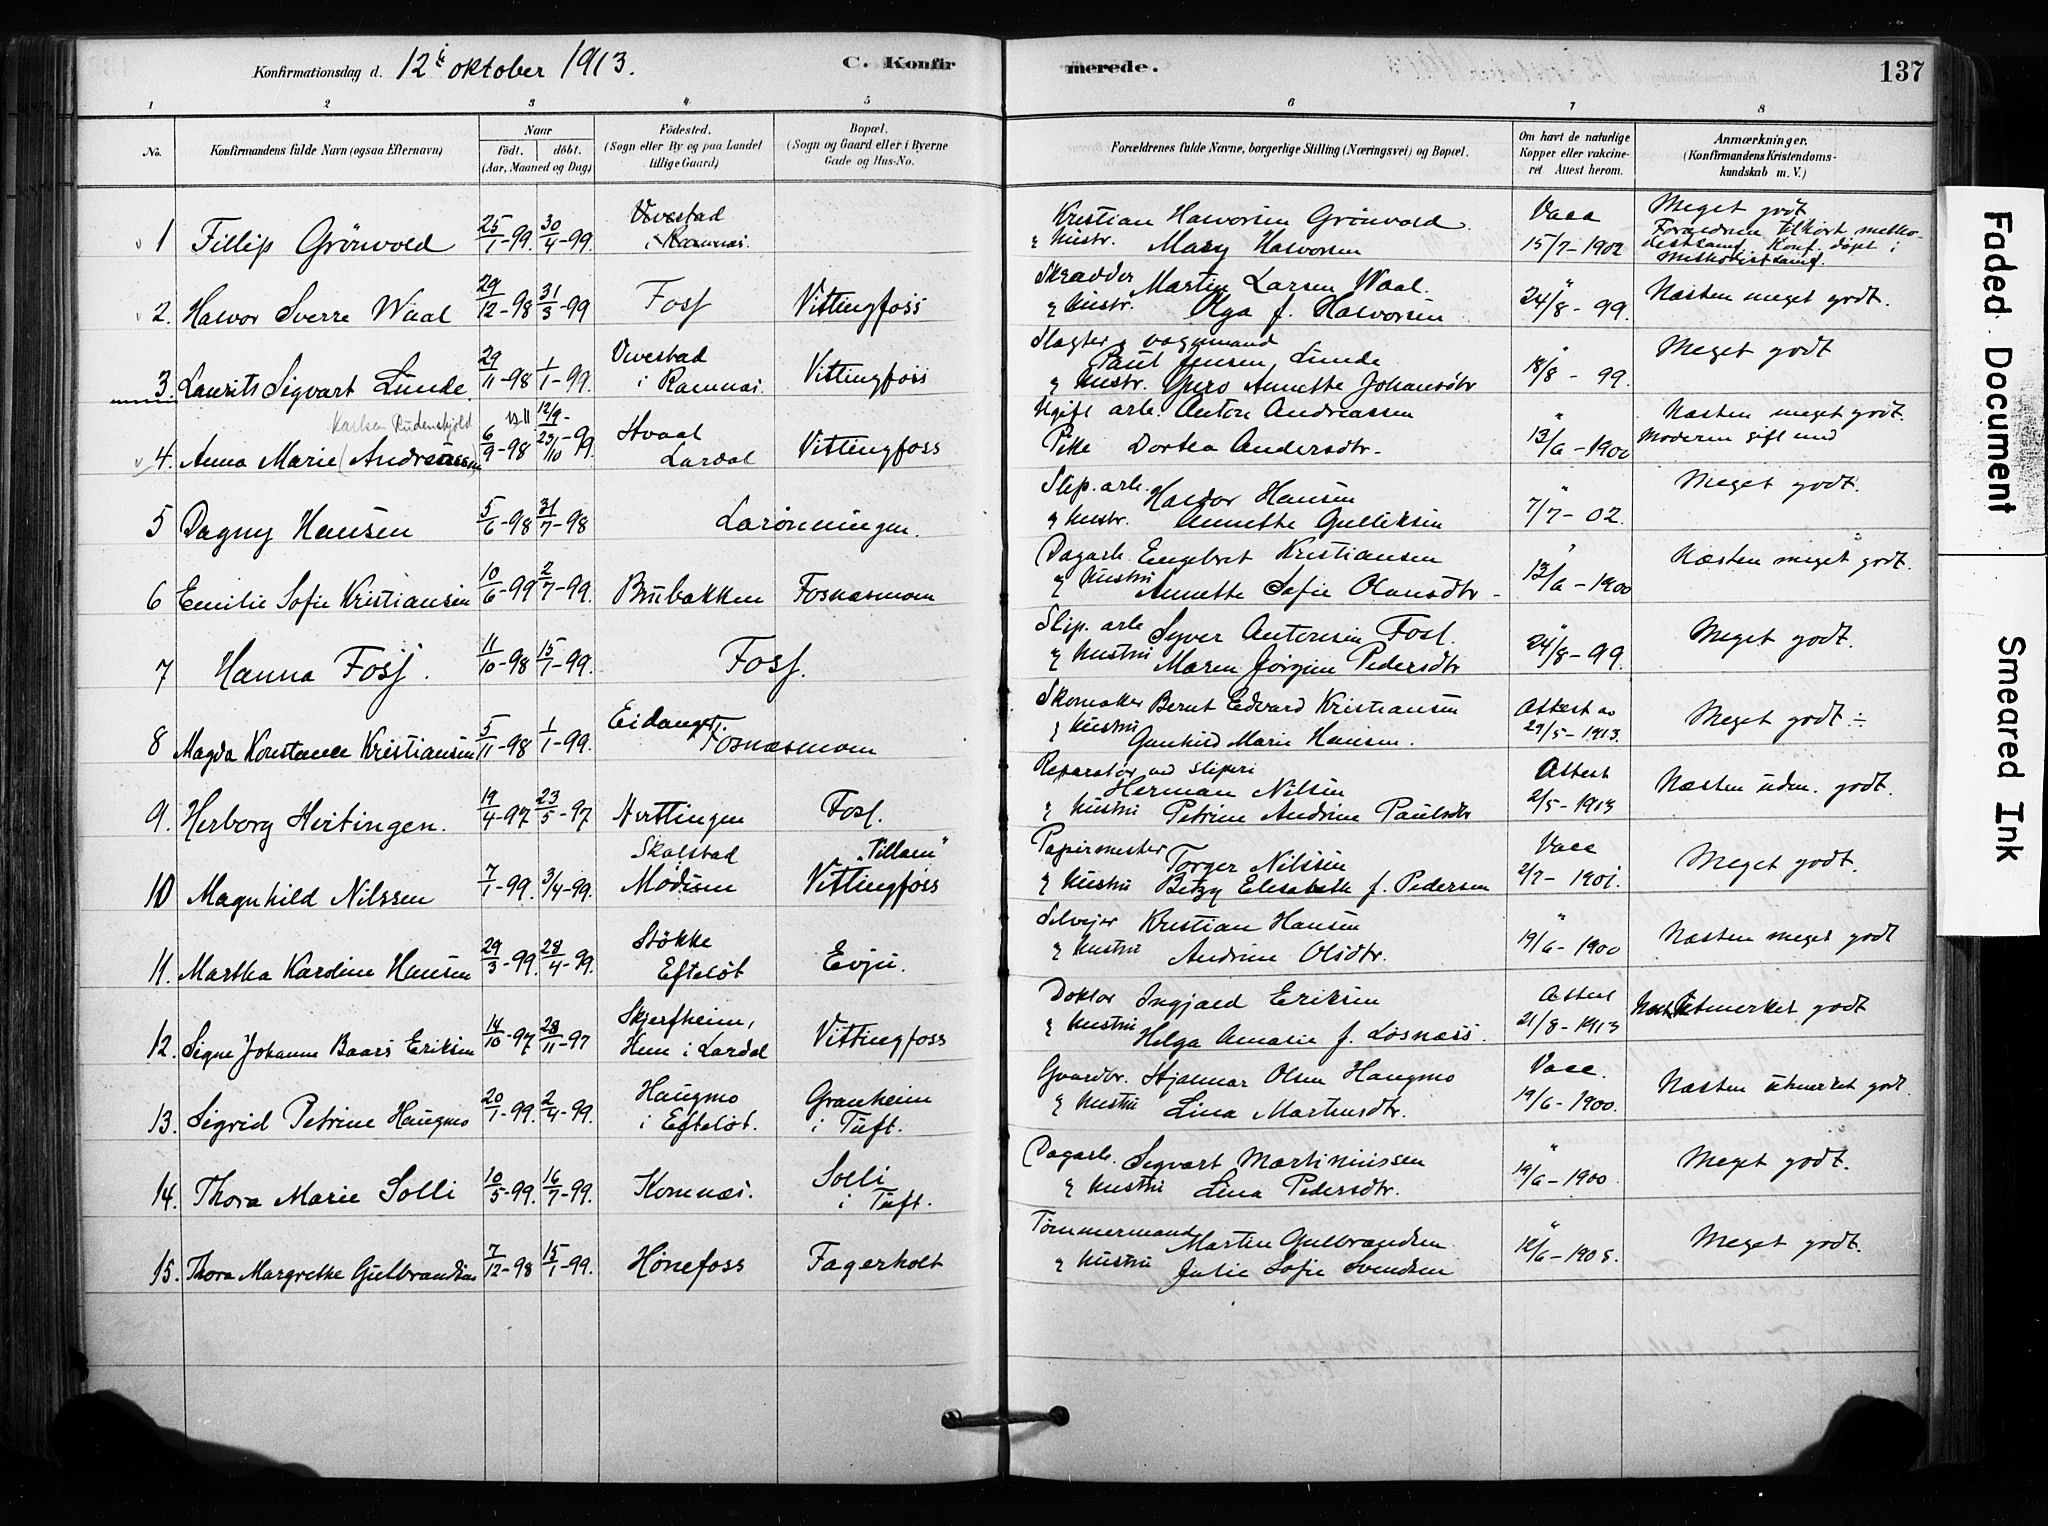 Konfirmationsdag d. 12te oktober 1913.
C. Konfir
merede.
137
1 2 3 4 5 6 7 8
No.
Konfirmandens fulde Navn (ogsaa Efternavn)
Naar
født. døbt.
(Aar, Maaned og Dag)
Fødested.
(Sogn eller By og paa Landet
tillige Gaard)
Bopæl.
(Sogn og Gaard eller i Byerne
Gade og Hus-No.
Forældrenes fulde Navne, borgerlige Stilling (Næringsvei) og Bopæl.
Om havt de naturlige
Kopper eller vakcine-
ret Attest herom.
Anmærkninger.
(Konfirmandens Kristendoms-
kundskab m. V.)
1 Fillip Grönvold 25/1-99. 30/4-99. Vivestad i Ramnæs. Kristian Halvorsen Grönvold & hustr. Mary Halvorsen Vacc 15/7-1902 Meget godt
Forældrene tilhört metho-
destsamf. Konf. döpt i
Methodistsamf.
2. Halvor Sverre Waal 29/12-98 31/3-99 Fosf Vittingfoss Skrædder Martin Larsen Waal & hustr. Olga f. Halvorsen " 24/8-99. Næsten meget godt.
3. Laurits Sigvart Lunde. 29/11-98 1/1-99. Vivestad i Ramnæs. Vittingfoss Slagter & vognmand Paul Jensen Lunde & hustr. Guro Annette Johansdtr " 18/8-99. Meget godt
Karlsen Rudenskjold
4. Anna Marie (Andreassen) 6/9-98 23/10-99 Hvaal Lardal Vittingfoss Ugift arb. Anton Andreassen Pike Dortea Andersdtr. " 13/6-1900 Næsten meget godt.
Moderen gift med
5 Dagny Hansen 5/6-98 31/7-98 Larönningen. Slip. arb. Haldor Hansen & hustr. Annette Gulliksen " 7/7-02. Meget godt.
6 Emilie Sofie Kristiansen 10/6-99 2/7-99. Brubakken Fosnæsmoen Dagarb. Engebret Kristiansen & hustru Annette Sofie Olausdtr " 13/6-1900 Næsten meget godt.
7 Hanna Fosf. 11/10-98 15/1-99. Fosf. Slip. arb Syver Antonsen Fosf. & hustru Maren Jörgine Pedersdtr " 24/8-99. Meget godt.
8 Magda Konstance Kristiansen 5/11-98 1/1-99. Eidanger. Fosnæsmoen Skomaker Bernt Edvard Kristiansen & hustru Gunhild Marie Hansen. Attest av 29/5-1913. Meget godt ÷
9. Herborg Hvitingen. 19/4-97 23/5-97 Hvittingen Fosf. Reparatör ved sliperi Herman Nilsen & hustru Petrine Andrine Paulsdtr Attest 2/5-1913 Næsten udm. godt.
10 Magnhild Nilssen 7/1-99. 3/4-99. Skalstad Modum "Villaen" Vittingfoss Papirmester Torger Nilssen & hustru Betzy Elisabeth f. Pedersen Vacc 2/7-1901. Meget godt.
11. Martha Karoline Hansen 29/3-99. 28/4-99. Stökke Efteløt Evju. Selvejer Kristian Hansen & hustru Andrine Olsdtr. " 19/6-1900 Næsten meget godt
12. Signe Johanne Baars Eriksen 14/10-97 28/11-97 Skjerfheim, Hem i Lardal Vittingfoss Doktor Ingjald Eriksen & hustru Helga Amalie f. Losnæss. Attest 21/8-1913 Næst. utmerket godt
13. Sigrid Petrine Haugmo 20/1-99. 2/4-99. Haugmo i Efteløt. Granheim i Tuft. Gaardbr. Hjalmar Olsen Haugmo & hustru Lina Martinsdtr. Vacc. 19/6-1900. Næsten utmerket godt
14. Thora Marie Solli 10/5-99. 16/7-99. Komnæs. Solli i Tuft. Dagarb. Sigvart Martiniussen & hustru Lina Pedersdtr. " 19/6-1900 Meget godt.
15. Thora Margrethe Gulbrandsen 7/12-98 15/1-99. Hönefoss Fagerholt Tømmermand Martin Gulbrandsen & hustru Julie Sofie Svendsen " Meget godt.
Faded Document
Smeared Ink